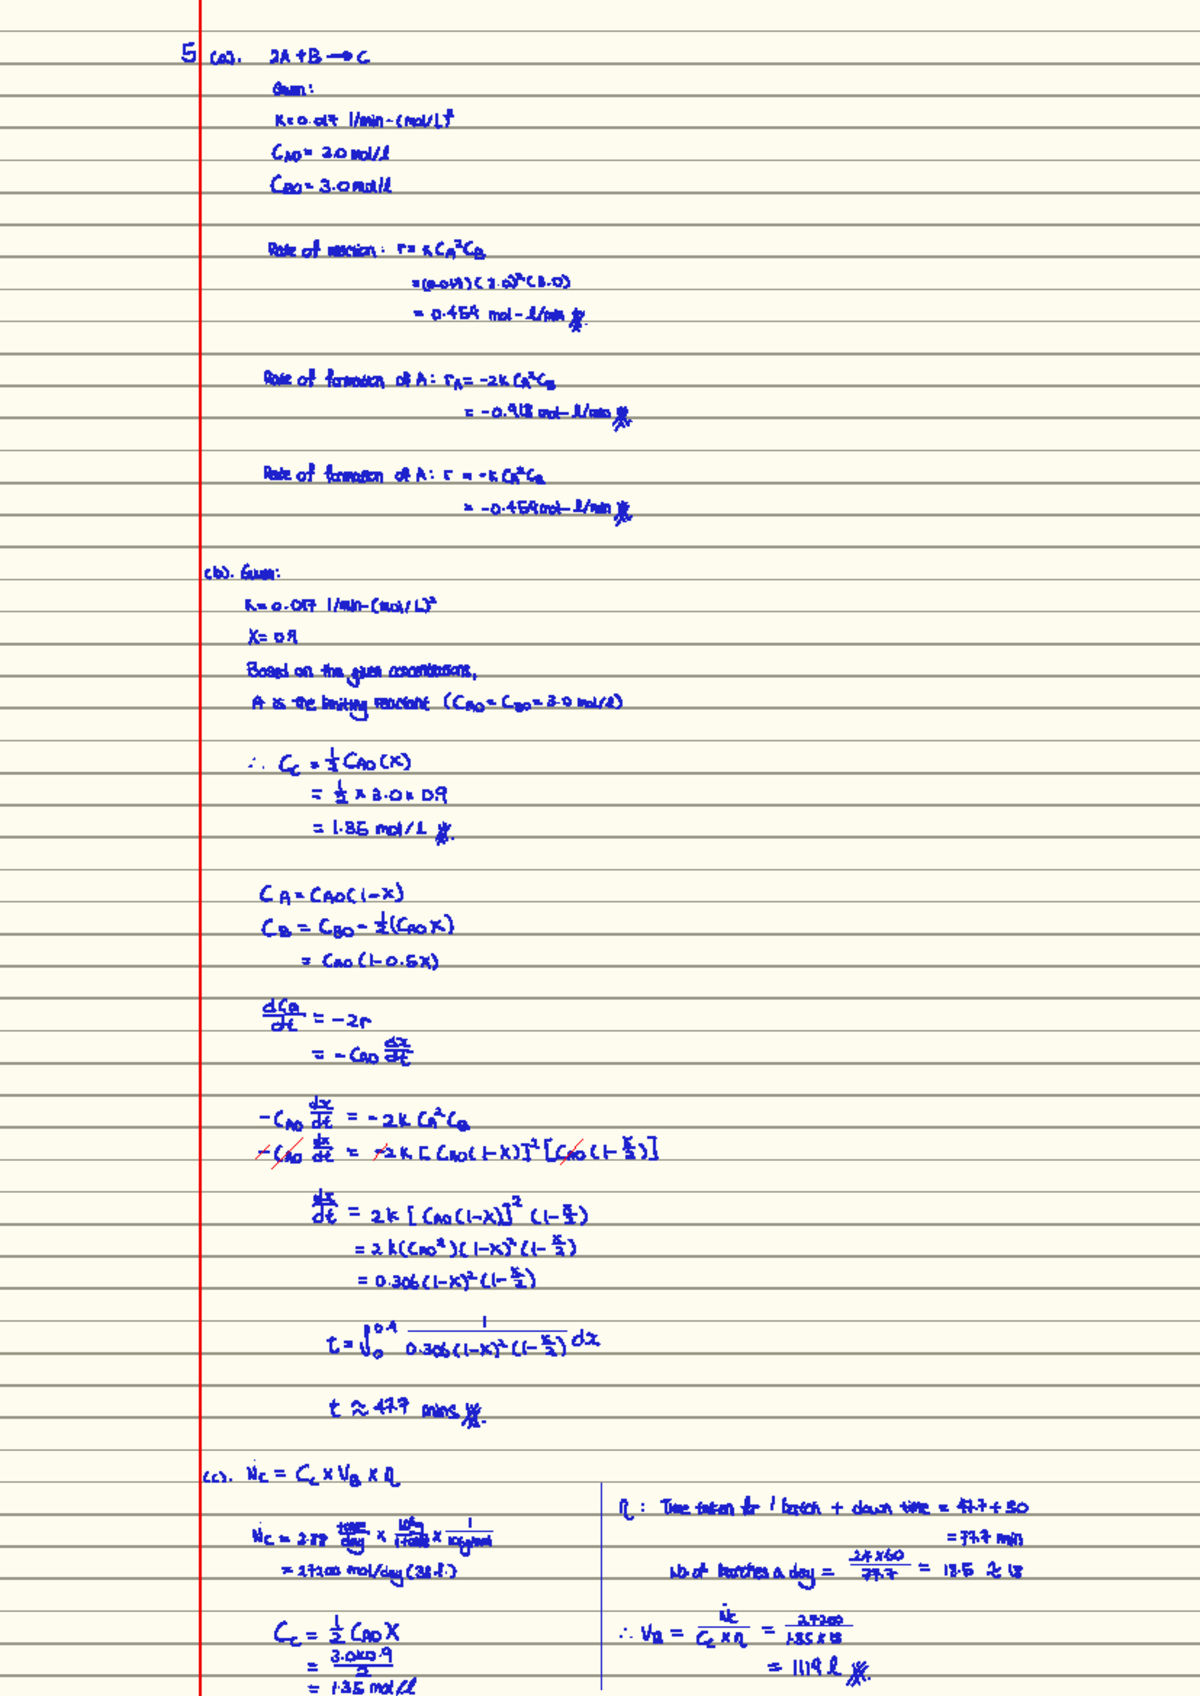 5 (a). 2A + B → C
Given:
k = 0.017 l/min-(mol/L)²
C_A0 = 3.0 mol/l
C_B0 = 3.0 mol/l
Rate of reaction: r = k C_A² C_B
= (0.017)(3.0)²(3.0)
= 0.459 mol-l/min
Rate of formation of A: r_A = -2k C_A² C_B
= -0.918 mol-l/min
Rate of formation of A: r = -k C_A² C_B
= -0.459 mol-l/min
(b). Given:
k = 0.017 l/min-(mol/L)²
X = 0.9
Based on the given concentrations,
A is the limiting reactant (C_A0 = C_B0 = 3.0 mol/l)
∴ C_C = 1/2 C_A0 (X)
= 1/2 × 3.0 × 0.9
= 1.35 mol/l
C_A = C_A0 (1-X)
C_B = C_B0 - 1/2 (C_A0 X)
= C_A0 (1-0.5X)
dC_A/dt = -2r
= -C_A0 dx/dt
-C_A0 dx/dt = -2k C_A² C_B
-C_A0 dx/dt = -2k [C_A0 (1-X)]² [C_A0 (1-X/2)]
dx/dt = 2k [C_A0 (1-X)]² (1-X/2)
= 2k (C_A0²)(1-X)² (1-X/2)
= 0.306 (1-X)² (1-X/2)
t = ∫₀^0.9 1/(0.306 (1-X)² (1-X/2)) dx
t ≈ 47.7 mins
(c). Ṅ_C = C_C × V_R × η
Ṅ_C = tonne/day × ×
= 27200 mol/day
C_C = 1/2 C_A0 X
= 3.0×0.9/2
= 1.35 mol/l
η: Time taken for 1 batch + down time = 47.7 + 30
= 77.7 min
No of batches a day = 24×60/77.7 = 18.5 ≈ 18
∴ V_R = Ṅ_C/(C_C × η) = 27200/(1.35 × 18)
= 1119 l